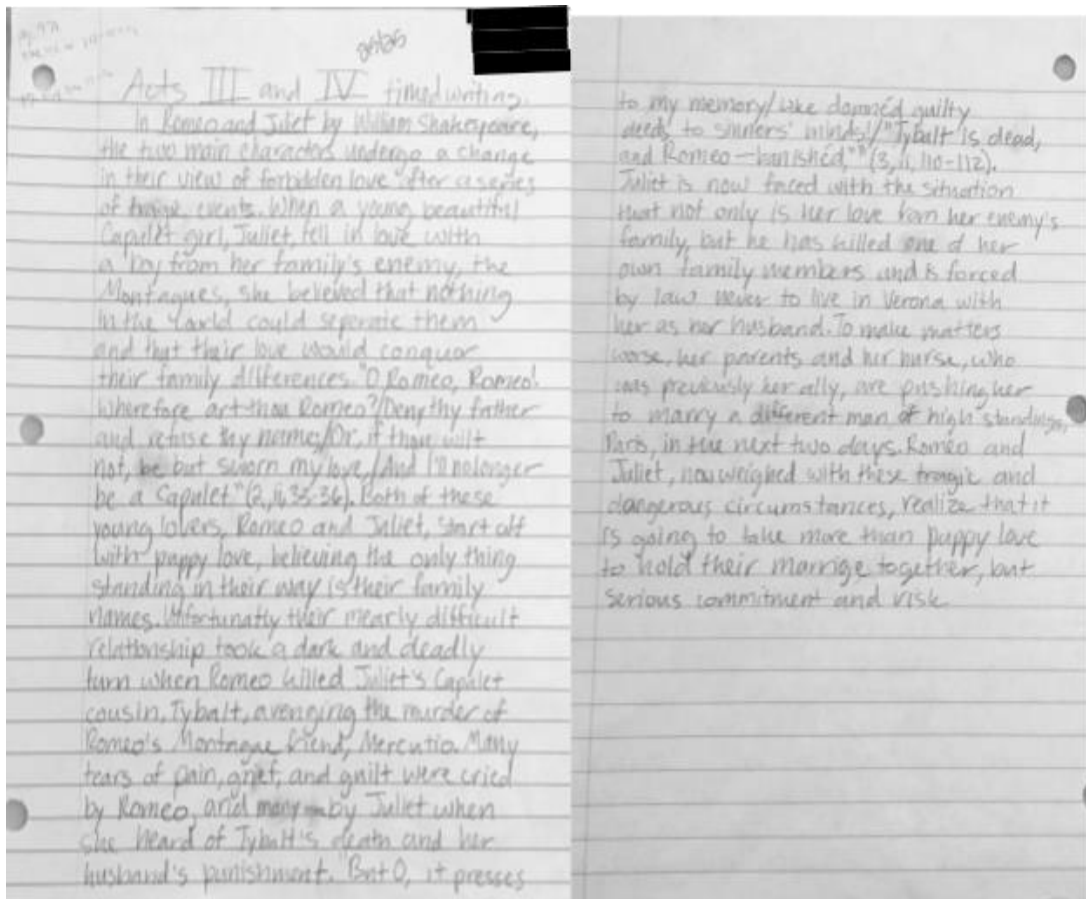 25/25
Acts III and IV timed writing.
In Romeo and Juliet by William Shakespeare,
the two main characters undergo a change
in their view of forbidden love after a series
of tragic events. When a young beautiful
Capulet girl, Juliet, fell in love with
a boy from her family's enemy, the
Montagues, she believed that nothing
in the world could seperate them
and that their love would conquor
their family differences. "O Romeo, Romeo!
Wherefore art thou Romeo?/Deny thy father
and refuse thy name;/Or, if thou wilt
not, be but sworn my love,/And I'll no longer
be a Capulet" (2, ii, 33-36). Both of these
young lovers, Romeo and Juliet, start off
with puppy love, believing the only thing
standing in their way is their family
names. Unfortunatly their mearly difficult
relationship took a dark and deadly
turn when Romeo killed Juliet's Capulet
cousin, Tybalt, avenging the murder of
Romeo's Montague friend, Mercutio. Many
tears of pain, grief, and guilt were cried
by Romeo, and many by Juliet when
she heard of Tybalt's death and her
husband's punishment. "But O, it presses
to my memory/Like damnéd guilty
deeds to sinners' minds!/"Tybalt is dead,
and Romeo—banishéd"" (3, ii, 110-112).
Juliet is now faced with the situation
that not only is her love from her enemy's
family, but he has killed one of her
own family members and is forced
by law never to live in Verona with
her as her husband. To make matters
worse, her parents and her nurse, who
was previously her ally, are pushing her
to marry a different man of high standings,
Paris, in the next two days. Romeo and
Juliet, now weighed with these tragic and
dangerous circumstances, realize that it
is going to take more than puppy love
to hold their marrige together, but
serious commitment and risk